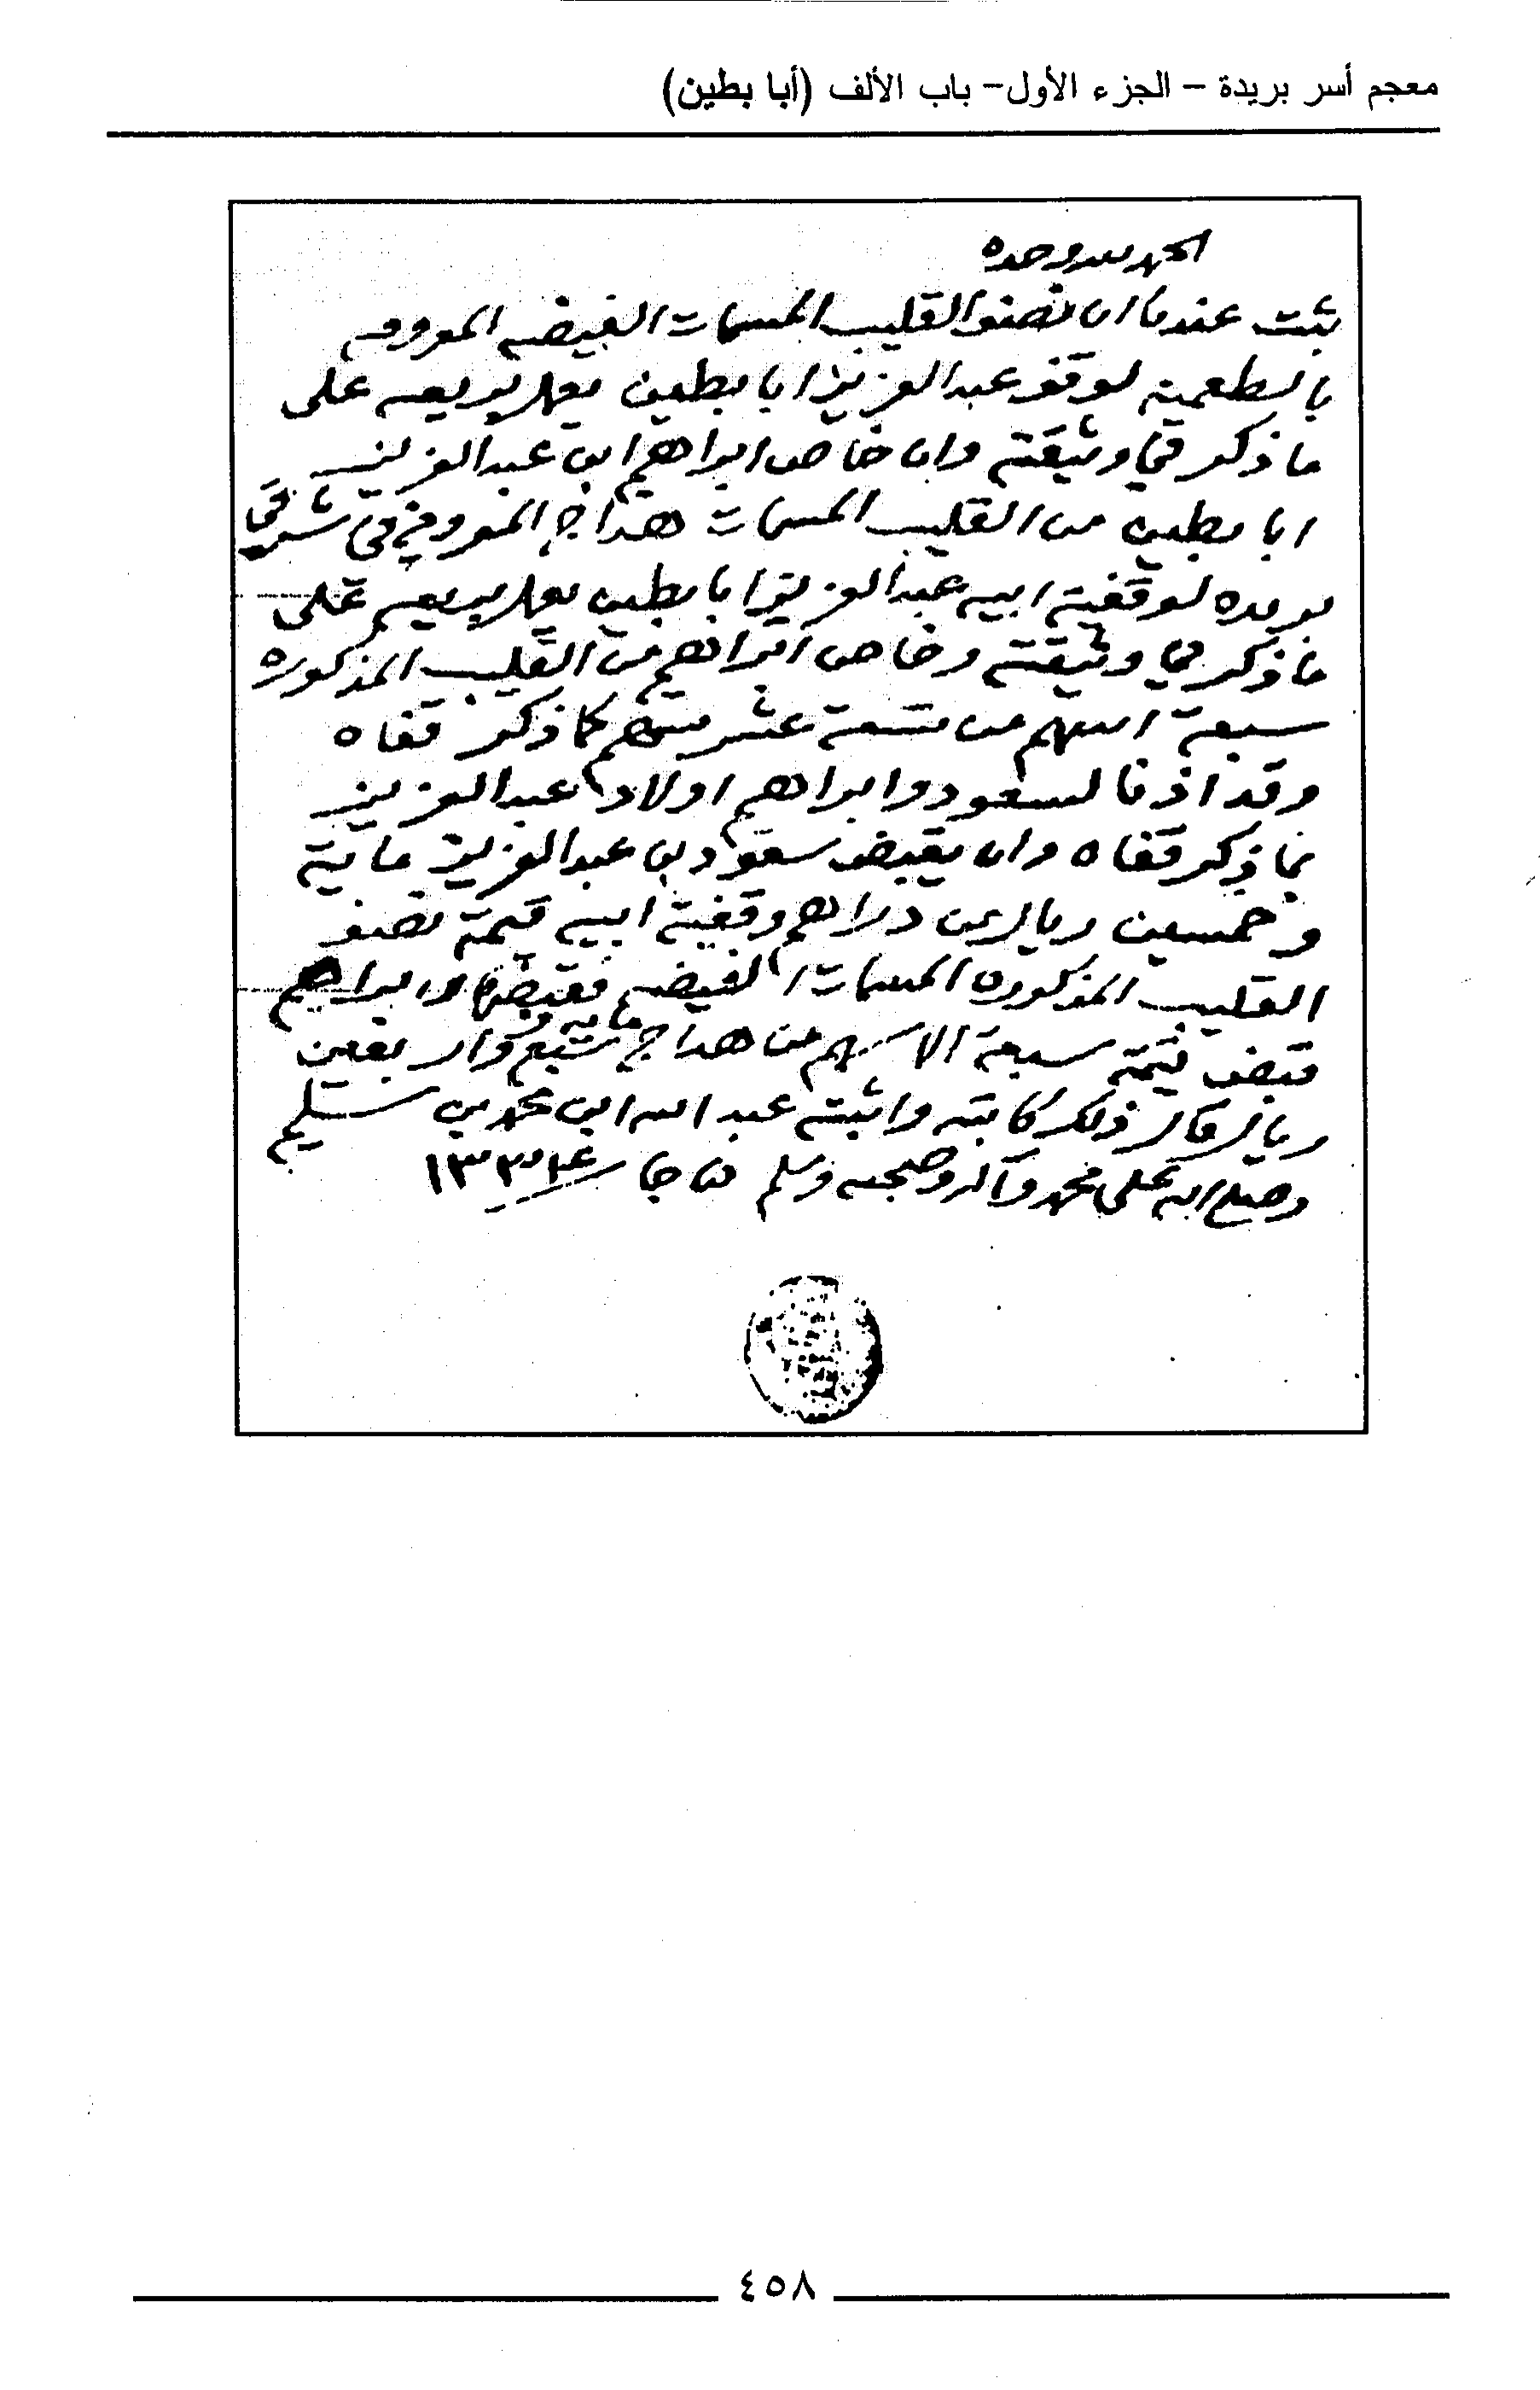 معجم أسر بريدة – الجزء الأول– باب الألف (أبا بطين)
الحمد لله وحده
ثبت عندنا ان نصف القليب المسمات الفيضه المعروفه
بالطعمية لوقف عبدالعزيز ابا بطين يعمل بريعه على
ما ذكر في وثيقته وان خاص ابراهيم ابن عبدالعزيز
ابا بطين من القليب المسمات هداج المعروفه في شرقي
بريده لوقفية ابيه عبدالعزيز ابا بطين يعمل بريعه على
ما ذكر في وثيقته وخاص ابراهيم من القليب المذكوره
سبعة اسهم من تسعة عشر سهم كما ذكر قفاه
وقد اذنا لسعود وابراهيم اولاد عبدالعزيز
بما ذكر قفاه وان يقبض سعود بن عبدالعزيز ماية
وخمسين ريال من دراهم وقفية ابيه قيمة نصف
القليب المذكوره المسمات الفيضه فقبضها وابراهيم
قبض قيمة سبعة الاسهم من هداج مايه وسبع واربعين
ريال قال ذلك كاتبه واثبته عبد الله ابن محمد بن سليم
وصلى الله على محمد وآله وصحبه وسلم جا ١٣٣
٤٥٨